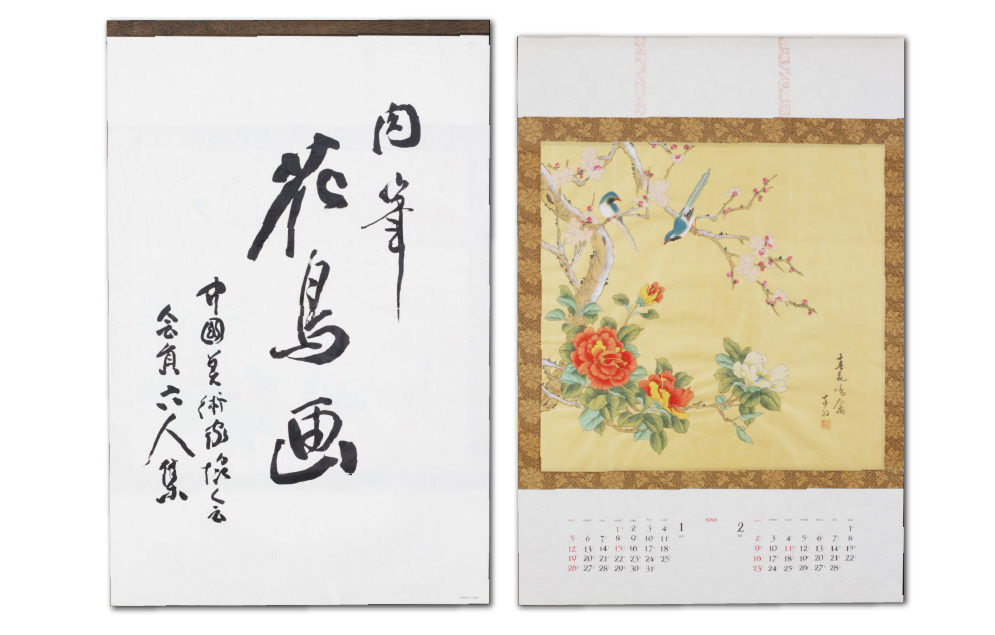 肉筆
花鳥画
中國美術家協会
会員六人集
春花鳴禽
sun mon tue wed thu fri sat
1 2 3 4
5 6 7 8 9 10 11
12 13 14 15 16 17 18
19 20 21 22 23 24 25
26 27 28 29 30 31
1
2
sun mon tue wed thu fri sat
1
2 3 4 5 6 7 8
9 10 11 12 13 14 15
16 17 18 19 20 21 22
23 24 25 26 27 28